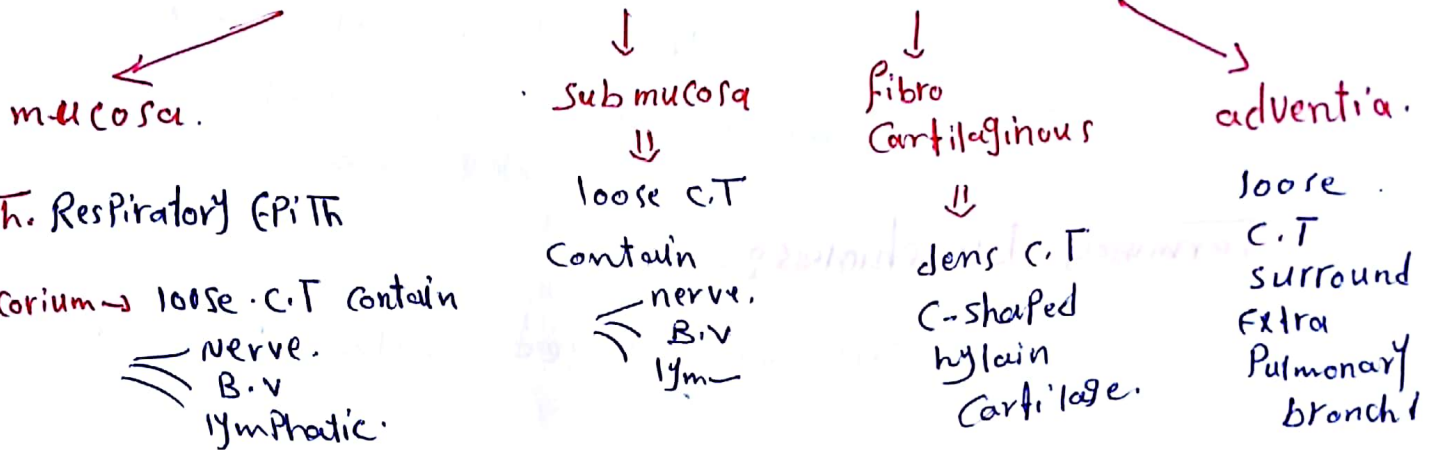 mucosa.
Th. Respiratory EPiTh
Corium → loose . C.T contain
Nerve.
B.V
lymphatic.
submucosa
⇓
loose C.T
Contain
nerve.
B.V
lym
fibro
Cartilaginous
⇓
dens C.T
C-shaped
hylain
Cartilage.
adventia.
loose
C.T
surround
Extra
Pulmonary
bronchi